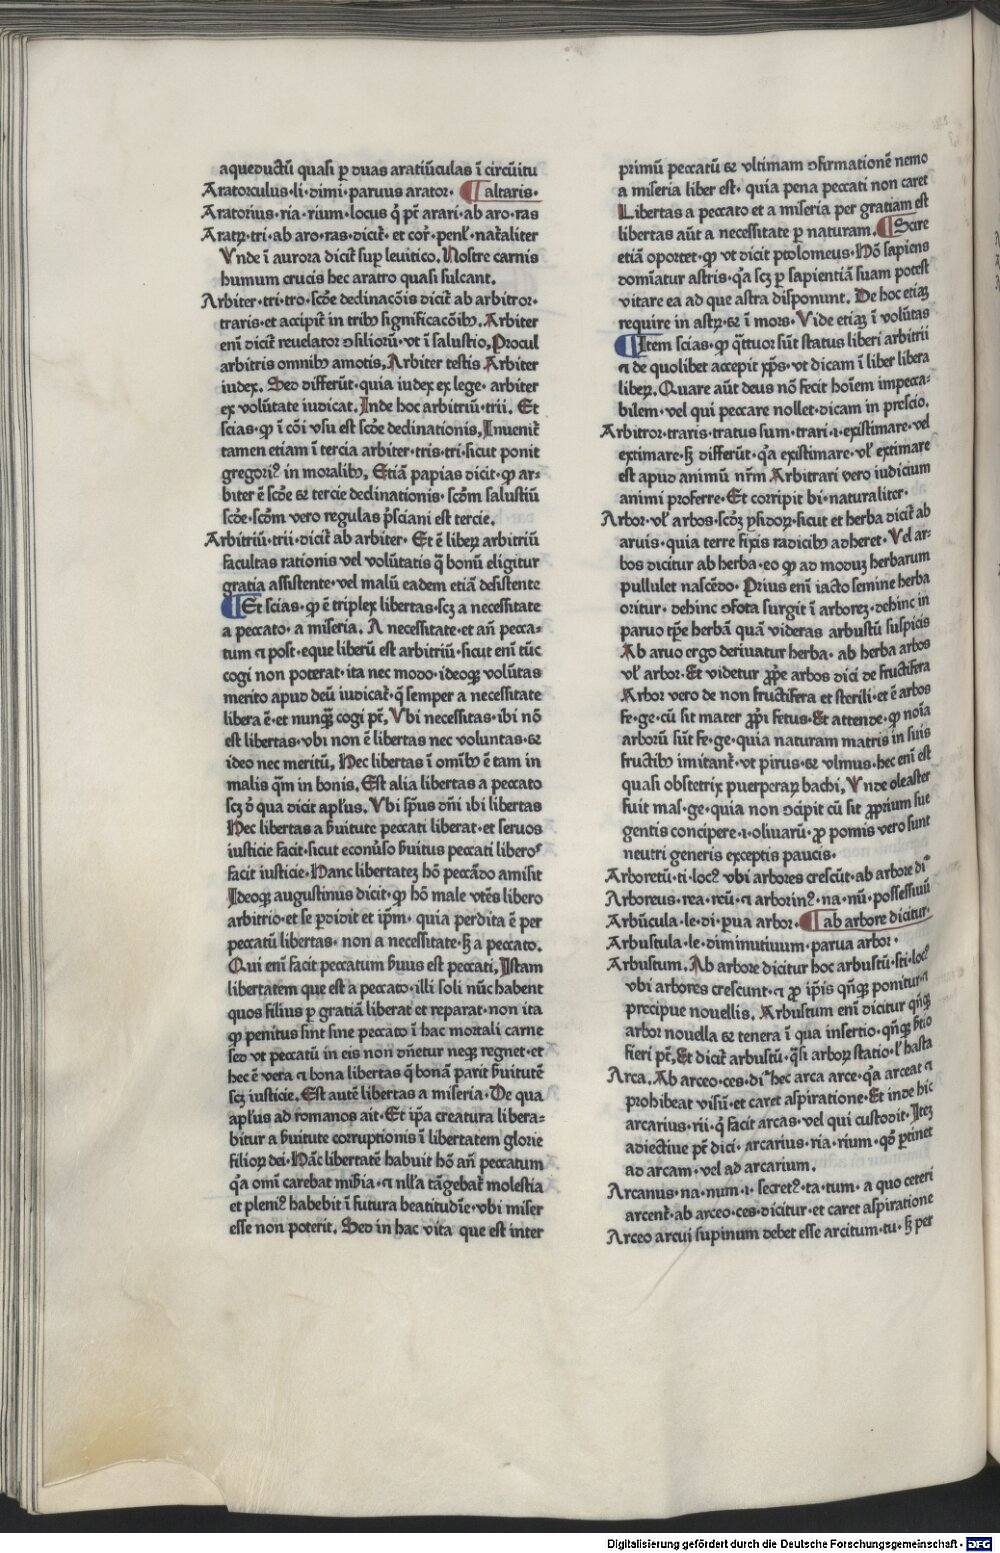 aqueductū quasi p duas aratiūculas ī circūitu
Aratorculus·li·dimi·paruus arator· ¶ altaris·
Aratorius·ria·rium·locus q̇ pt̄ arari·ab aro·ras
Aratꝝ·tri·ab aro·ras·dicit᷑· et cor̄·penl᷑·nat᷑aliter
Vnde ī aurora dicit᷑ suꝑ leuitico. Nostre carnis
humum crucis hec aratro quasi sulcant.
Arbiter·tri·tro·scd̄e declinacōis dicit᷑ ab arbitror·
traris·et accipit᷑ in tribꝰ significacōibꝰ. Arbiter
eni᷑ dicit᷑ reuelator ꝯsiliorū·vt ī salustio. Procul
arbitris omnibꝰ amotis. Arbiter testis Arbiter
iudex. Sed differūt·quia iudex ex lege· arbiter
ex volūtate iudicat. Inde hoc arbitriū·trii. Et
scias·ꝙ ī cōi vsu est scd̄e declinationis. Inuenit᷑
tamen etiam ī tercia arbiter·tris·tri·sicut ponit
gregoriꝰ in moralibꝰ. Etiā papias dicit·ꝙ ar-
biter ē scd̄e ⁊ tercie declinationis· scd̄m salustiū
scd̄e·scd̄m vero regulas p̄sciani est tercie.
Arbitriū·trii·dicit᷑ ab arbiter· Et ē libeꝝ arbitriū
facultas rationis vel volūtatis q̄ bonū eligitur
gratia assistente·vel malū eadem etiā desistente
¶ Et scias·ꝙ ē triplex libertas·scꝫ a necessitate
a peccato· a miseria. A necessitate·et an̄ pecca-
tum ⁊ post·eque liberū est arbitriū·sicut eni᷑ tūc
cogi non poterat·ita nec modo·ideoqꝫ volūtas
merito apud deū iudicat᷑·q̄ semper a necessitate
libera ē·et nunqꝫ̄ cogi pt̄. Vbi necessitas·ibi nō
est libertas·vbi non ē libertas nec voluntas·⁊
ideo nec meritū. Nec libertas ī omībꝰ ē tam in
malis q̄m in bonis. Est alia libertas a peccato
scꝫ ꝺ̄ qua dicit apl̄us. Vbi sp̄us dn̄i ibi libertas
Hec libertas a ẜuitute peccati liberat·et seruos
iusticie facit·sicut econūso ẜuitus peccati liberoˢ
facit iusticie· Hanc libertateꝫ hō peccādo amisit
Ideoqꝫ augustinus dicit·ꝙ hō male vtēs libero
arbitrio·et se ꝑdidit et ip̄m· quia perdita ē per
peccatū libertas· non a necessitate·ꜩ a peccato.
Qui eni᷑ facit peccatum ẜuus est peccati. Istam
libertatem que est a peccato·illi soli nūc habent
quos filius ꝑ gratiā liberat et reparat·non ita
ꝙ penitus sint sine peccato ī hac mortali carne
sed vt peccatū in eis non dn̄etur neqꝫ regnet·et
hec ē vera ⁊ bona libertas q̄ bonā parit ẜuitutē
scꝫ iusticie. Est autē libertas a miseria· De qua
apl̄us ad romanos ait· Et ip̄a creatura libera-
bitur a ẜuitute corruptionis ī libertatem glorie
filioꝝ dei·Hāc libertatē habuit hō an̄ peccatum
q̄a omi᷑ carebat mis̄ia·⁊ nll̄a tāgebat᷑ molestia
et pleniꝰ habebit ī futura beatitudīe·vbi miser
esse non poterit. Sed in hac vita que est inter
primū peccatū ⁊ vltimam ꝯfirmationē nemo
a miseria liber est· quia pena peccati non caret
Libertas a peccato et a miseria per gratiam est
libertas aūt a necessitate ꝑ naturam. ¶ Scire
etiā oportet·ꝙ vt dicit ptolomeus·Hō sapiens
domīatur astris·q̄a scꝫ ꝑ sapientiā suam potest
vitare ea ad que astra disponunt. De hoc etiaꝫ
require in astꝝ·⁊ ī mors. Vide etiaꝫ ī volūtas
¶ Item scias·ꝙ q̄tuor sūt status liberi arbitrii
⁊ de quolibet accepit xp̄s·vt dicam ī liber libera
libeꝝ. Quare aūt deus nō fecit hoīem impecca-
bilem·vel qui peccare nollet·dicam in prescio.
Arbitror·traris·tratus sum·trari·i·existimare·vel
extimare·ꜩ differūt·q̄a existimare·vl᷑ extimare
est apud animū nr̄m Arbitrari vero iudicium
animi proferre·Et corripit bi·naturaliter·
Arbor·vl᷑ arbos·scd̄ꝫ ysidoꝝ·sicut et herba dicit᷑ ab
aruis·quia terre fixis radicibꝰ adheret·Vel ar-
bos dicitur ab herba·eo ꝙ ad moduꝫ herbarum
pullulet nascēdo· Prius eni᷑ iacto semine herba
oritur·dehinc ꝯfota surgit ī arboreꝫ·dehinc in
paruo tp̄e herbā quā videras arbustū suspicis
Ab aruo ergo deriuatur herba· ab herba arbos
vl᷑ arbor·Et videtur ꝓp̄e arbos dici de fructifera
Arbor vero de non fructifera et sterili·et ē arbos
fe·ge·cū sit mater ꝓp̄i fetus·Et attende·ꝙ noīa
arborū sūt fe·ge·quia naturam matris in suis
fructibꝰ imitant᷑·vt pirus·⁊ vlmus·hec eni᷑ est
quasi obstetrix puerperaꝝ bachi. Vnde oleaster
fuit mas·ge·quia non ꝯcipit cū sit ꝓprium sue
gentis concipere·i·oliuarū·ꝓ pomis vero sunt
neutri generis exceptis paucis·
Arboretū·ti·locꝰ vbi arbores crescūt·ab arbore di᷑
Arboreus·rea·reū·⁊ arborinꝰ·na·nū·possessiuū
Arbūcula·le·di·ꝑua arbor· ¶ ab arbore dicitur·
Arbustula·le·diminutiuum·parua arbor·
Arbustum. Ab arbore dicitur hoc arbustū·sti·locꝰ
vbi arbores crescunt·⁊ ꝓ ip̄is qn̄qꝫ ponitur·⁊
precipue nouellis. Arbustum eni᷑ dicitur qn̄qꝫ
arbor nouella ⁊ tenera ī qua insertio·qn̄qꝫ ẜtio
fieri pt̄. Et dicit᷑ arbustū·q̄si arboꝝ statio·l᷑ hasta
Arca. Ab arceo·ces·di᷑ hec arca arce·q̄a arceat ⁊
prohibeat visū·et caret aspiratione·Et inde hic
arcarius·rii·q̇ facit arcas·vel qui custodit·Iteꝫ
adiectiue pt̄ dici· arcarius·ria·rium·qd̄ ꝑtinet
ad arcam·vel ad arcarium.
Arcanus·na·num·i·secretꝰ·ta·tum· a quo ceteri
arcent᷑·ab arceo·ces·dicitur·et caret aspiratione
Arceo arcui supinum debet esse arcitum·tu·ꜩ per
Digitalisierung gefördert durch die Deutsche Forschungsgemeinschaft - DFG